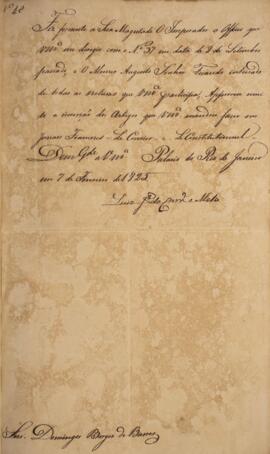 Nº 40
Fiz presente a Sua Magestade O Imperador o Officio que
V Mce me dirigio com o Nº 37 em data de 8 de Setembro
passado; e O Mesmo Augusto Senhor Ficando inteirado
de todas as noticias que V Mce participa,
a inserção dos Artigos que V Mce mandou fazer nos
Jornaes Francezes - Le Courier - e Le Constitutionnel
Deos Gde a V Mce Palacio do Rio de Janeiro
em 7 de Fevereiro de 1825
Luiz Je de Carvo e Mello
Snr. Domingos Borges de Barros